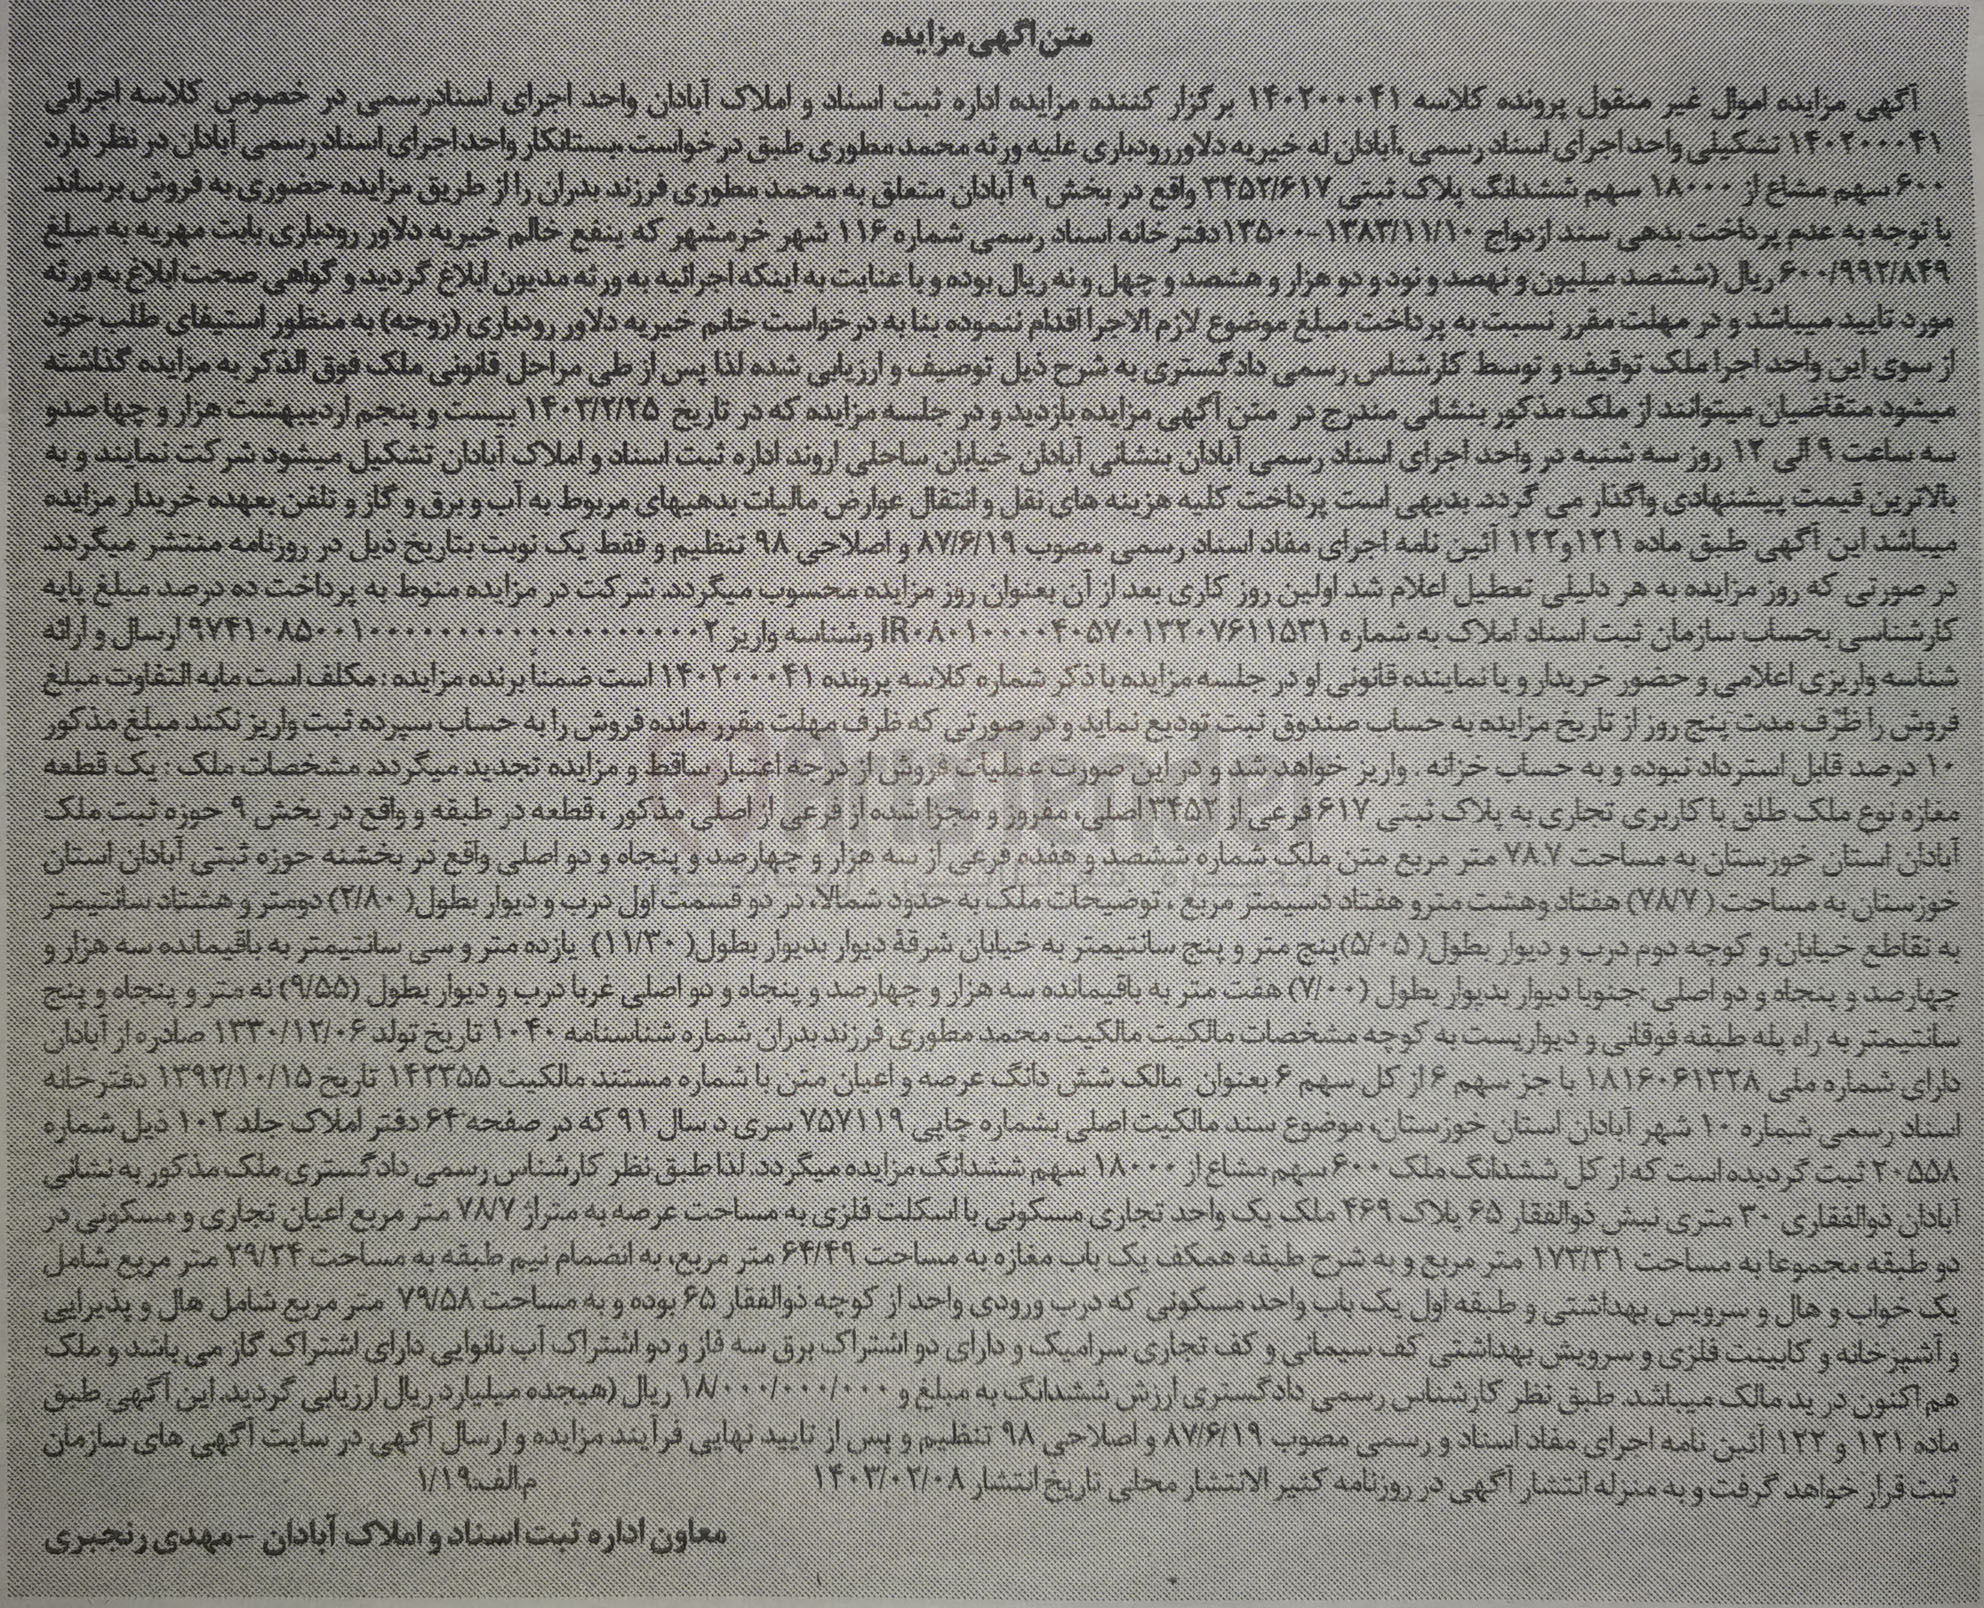 متن آگهی مزایده
آگهی مزایده اموال غیر منقول پرونده کلاسه ۱۴۰۲۰۰۰۴۱ برگزار کننده مزایده اداره ثبت اسناد و املاک آبادان واحد اجرای اسنادرسمی در خصوص کلاسه اجرائی
۱۴۰۲۰۰۰۴۱ تشکیلی واحد اجرای اسناد رسمی ،آبادان له خیریه دلاور رودباری علیه ورثه محمد مطوری طبق درخواست بستانکار واحد اجرای اسناد رسمی آبادان در نظر دارد
۶۰۰ سهم مشاع از ۱۸۰۰۰ سهم ششدانگ پلاک ثبتی ۳۴۵۲/۶۱۷ واقع در بخش ۹ آبادان متعلق به محمد مطوری فرزند بدران را از طریق مزایده حضوری به فروش برساند.
با توجه به عدم پرداخت بدهی سند ازدواج ۱۳۸۳/۱۱/۱۰-۱۳۵۰۰دفترخانه اسناد رسمی شماره ۱۱۶ شهر خرمشهر که بنفع خالم خیریه دلاور رودباری بابت مهریه به مبلغ
۶۰۰/۹۹۲/۸۴۹ ریال (ششصد میلیون و نهصد و نود و دو هزار و هشصد و چهل و نه ریال بوده و با عنایت به اینکه اجرائیه به ورثه مدیون ابلاغ گردید و گواهی صحت ابلاغ به ورثه
مورد تایید میباشد و در مهلت مقرر نسبت به پرداخت مبلغ موضوع لازم الاجرا اقدام ننموده بنا به درخواست خانم خیریه دلاور رودباری (زوجه) به منظور استیفای طلب خود
از سوی این واحد اجرا ملک توقیف و توسط کارشناس رسمی دادگستری به شرح ذیل توصیف و ارزیابی شده لذا پس از طی مراحل قانونی ملک فوق الذکر به مزایده گذاشته
میشود متقاضیان میتوانند از ملک مذکور بنشانی مندرج در متن آگهی مزایده بازدید و در جلسه مزایده که در تاریخ ۱۴۰۳/۲/۲۵ بیست و پنجم اردیبهشت هزار و چهارصدو
سه ساعت ۹ الی ۱۲ روز سه شنبه در واحد اجرای اسناد رسمی آبادان بنشانی آبادان خیابان ساحلی اروند اداره ثبت اسناد و املاک آبادان تشکیل میشود شرکت نمایند و به
بالاترین قیمت پیشنهادی واگذار می گردد. بدیهی است پرداخت کلیه هزینه های نقل و انتقال عوارض مالیات بدهیهای مربوط به آب و برق و گاز و تلفن بعهده خریدار مزایده
میباشد این آگهی طبق ماده ۱۲۱و۱۲۲ آئین نامه اجرای مفاد اسناد رسمی مصوب ۸۷/۶/۱۹ و اصلاحی ۹۸ تنظیم و فقط یک نوبت بتاریخ ذیل در روزنامه منتشر میگردد.
در صورتی که روز مزایده به هر دلیلی تعطیل اعلام شد اولین روز کاری بعد از آن بعنوان روز مزایده محسوب میگردد. شرکت در مزایده منوط به پرداخت ده درصد مبلغ پایه
کارشناسی بحساب سازمان ثبت اسناد املاک به شماره وشناسه واریز ارسال و ارائه
شناسه واریزی اعلامی و حضور خریدار و یا نماینده قانونی او در جلسه مزایده با ذکر شماره کلاسه پرونده ۱۴۰۲۰۰۰۴۱ است ضمناً برنده مزایده : مکلف است مابه التفاوت مبلغ
فروش را ظرف مدت پنج روز از تاریخ مزایده به حساب صندوق ثبت تودیع نماید و درصورتی که ظرف مهلت مقرر مانده فروش را به حساب سپرده ثبت واریز نکند مبلغ مذکور
۱۰ درصد قابل استرداد نبوده و به حساب خزانه . واریز خواهد شد و در این صورت عملیات فروش از درجه اعتبار ساقط و مزایده تجدید میگردد. مشخصات ملک : یک قطعه
مغازه نوع ملک طلق با کاربری تجاری به پلاک ثبتی ۶۱۷ فرعی از ۳۴۵۲ اصلی، مفروز و مجزا شده از فرعی از اصلی مذکور ، قطعه در طبقه و واقع در بخش ۹ حوزه ثبت ملک
آبادان استان خوزستان به مساحت ۷۸.۷ متر مربع متن ملک شماره ششصد و هفده فرعی از سه هزار و چهارصد و پنجاه و دو اصلی واقع در بخشنه حوزه ثبتی آبادان استان
خوزستان به مساحت (۷۸/۷) هفتاد وهشت مترو هفتاد دسیمتر مربع ، توضیحات ملک به حدود شمالا، در دو قسمت اول درب و دیوار بطول( ۲/۸۰) دومتر و هشتاد سانتیمتر
به تقاطع خیابان و کوچه دوم درب و دیوار بطول( ۵/۰۵)پنج متر و پنج سانتیمتر به خیابان شرقهٔ دیوار بدیوار بطول( ۱۱/۳۰) یازده متر و سی سانتیمتر به باقیمانده سه هزار و
چهارصد و پنجاه و دو اصلی :جنوبا دیوار بدیوار بطول (۷/۰۰) هفت متر به باقیمانده سه هزار و چهارصد و پنجاه و دو اصلی غربا درب و دیوار بطول (۹/۵۵) نه متر و پنجاه و پنج
سانتیمتر به راه پله طبقه فوقانی و دیواریست به کوچه مشخصات مالکیت مالکیت محمد مطوری فرزند بدران شماره شناسنامه ۱۰۴۰ تاریخ تولد ۱۳۳۰/۱۲/۰۶ صادره از آبادان
دارای شماره ملی ۱۸۱۶۰۶۱۳۲۸ با جز سهم ۶ از کل سهم ۶ بعنوان مالک شش دانگ عرصه و اعیان متن با شماره مستند مالکیت ۱۴۲۳۵۵ تاریخ ۱۳۹۲/۱۰/۱۵ دفترخانه
اسناد رسمی شماره ۱۰ شهر آبادان استان خوزستان، موضوع سند مالکیت اصلی بشماره چاپی ۷۵۷۱۱۹ سری د سال ۹۱ که در صفحه ۶۴ دفتر املاک جلد ۱۰۲ ذیل شماره
۲۰۵۵۸ ثبت گردیده است که از کل ششدانگ ملک ۶۰۰ سهم مشاع از ۱۸۰۰۰ سهم ششدانگ مزایده میگردد. لذا طبق نظر کارشناس رسمی دادگستری ملک مذکور به نشانی
آبادان ذوالفقاری ۳۰ متری نبش ذوالفقار ۶۵ پلاک ۴۶۹ ملک یک واحد تجاری مسکونی با اسکلت فلزی به مساحت عرصه به متراژ ۷۸/۷ متر مربع اعیان تجاری و مسکونی در
دو طبقه مجموعا به مساحت ۱۷۳/۳۱ متر مربع و به شرح طبقه همکف یک باب مغازه به مساحت ۶۴/۴۹ متر مربع، به انضمام نیم طبقه به مساحت ۲۹/۲۴ متر مربع شامل
یک خواب و هال و سرویس بهداشتی و طبقه اول یک باب واحد مسکونی که درب ورودی واحد از کوچه ذوالفقار ۶۵ بوده و به مساحت ۷۹/۵۸ متر مربع شامل هال و پذیرایی
و آشپزخانه و کابینت فلزی و سرویش بهداشتی کف سیمانی و کف تجاری سرامیک و دارای دو اشتراک برق سه فاز و دو اشتراک آب نانوایی دارای اشتراک گاز می باشد و ملک
هم اکنون در ید مالک میباشد. طبق نظر کارشناس رسمی دادگستری ارزش ششدانگ به مبلغ و ۱۸/۰۰۰/۰۰۰/۰۰۰ ریال (هیجده میلیارد ریال ارزیابی گردید. این آگهی طبق
ماده ۱۲۱ و ۱۲۲ آئین نامه اجرای مفاد اسناد و رسمی مصوب ۸۷/۶/۱۹ و اصلاحی ۹۸ تنظیم و پس از تایید نهایی فرآیند مزایده و ارسال آگهی در سایت آگهی های سازمان
ثبت قرار خواهد گرفت و به منزله انتشار آگهی در روزنامه کثیر الانتشار محلی تاریخ انتشار ۱۴۰۳/۰۲/۰۸ م.الف:۱/۱۹
معاون اداره ثبت اسناد و املاک آبادان - مهدی رنجبری